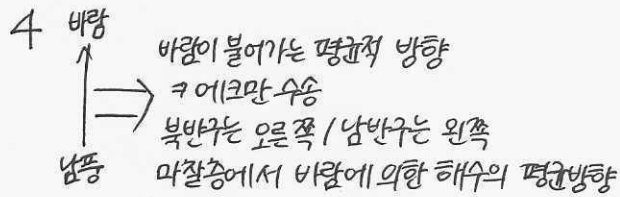 4 바람
바람이 불어가는 평균적 방향
ㅋ 에크만 수송
북반구는 오른쪽 / 남반구는 왼쪽
남풍
마찰층에서 바람에 의한 해수의 평균방향